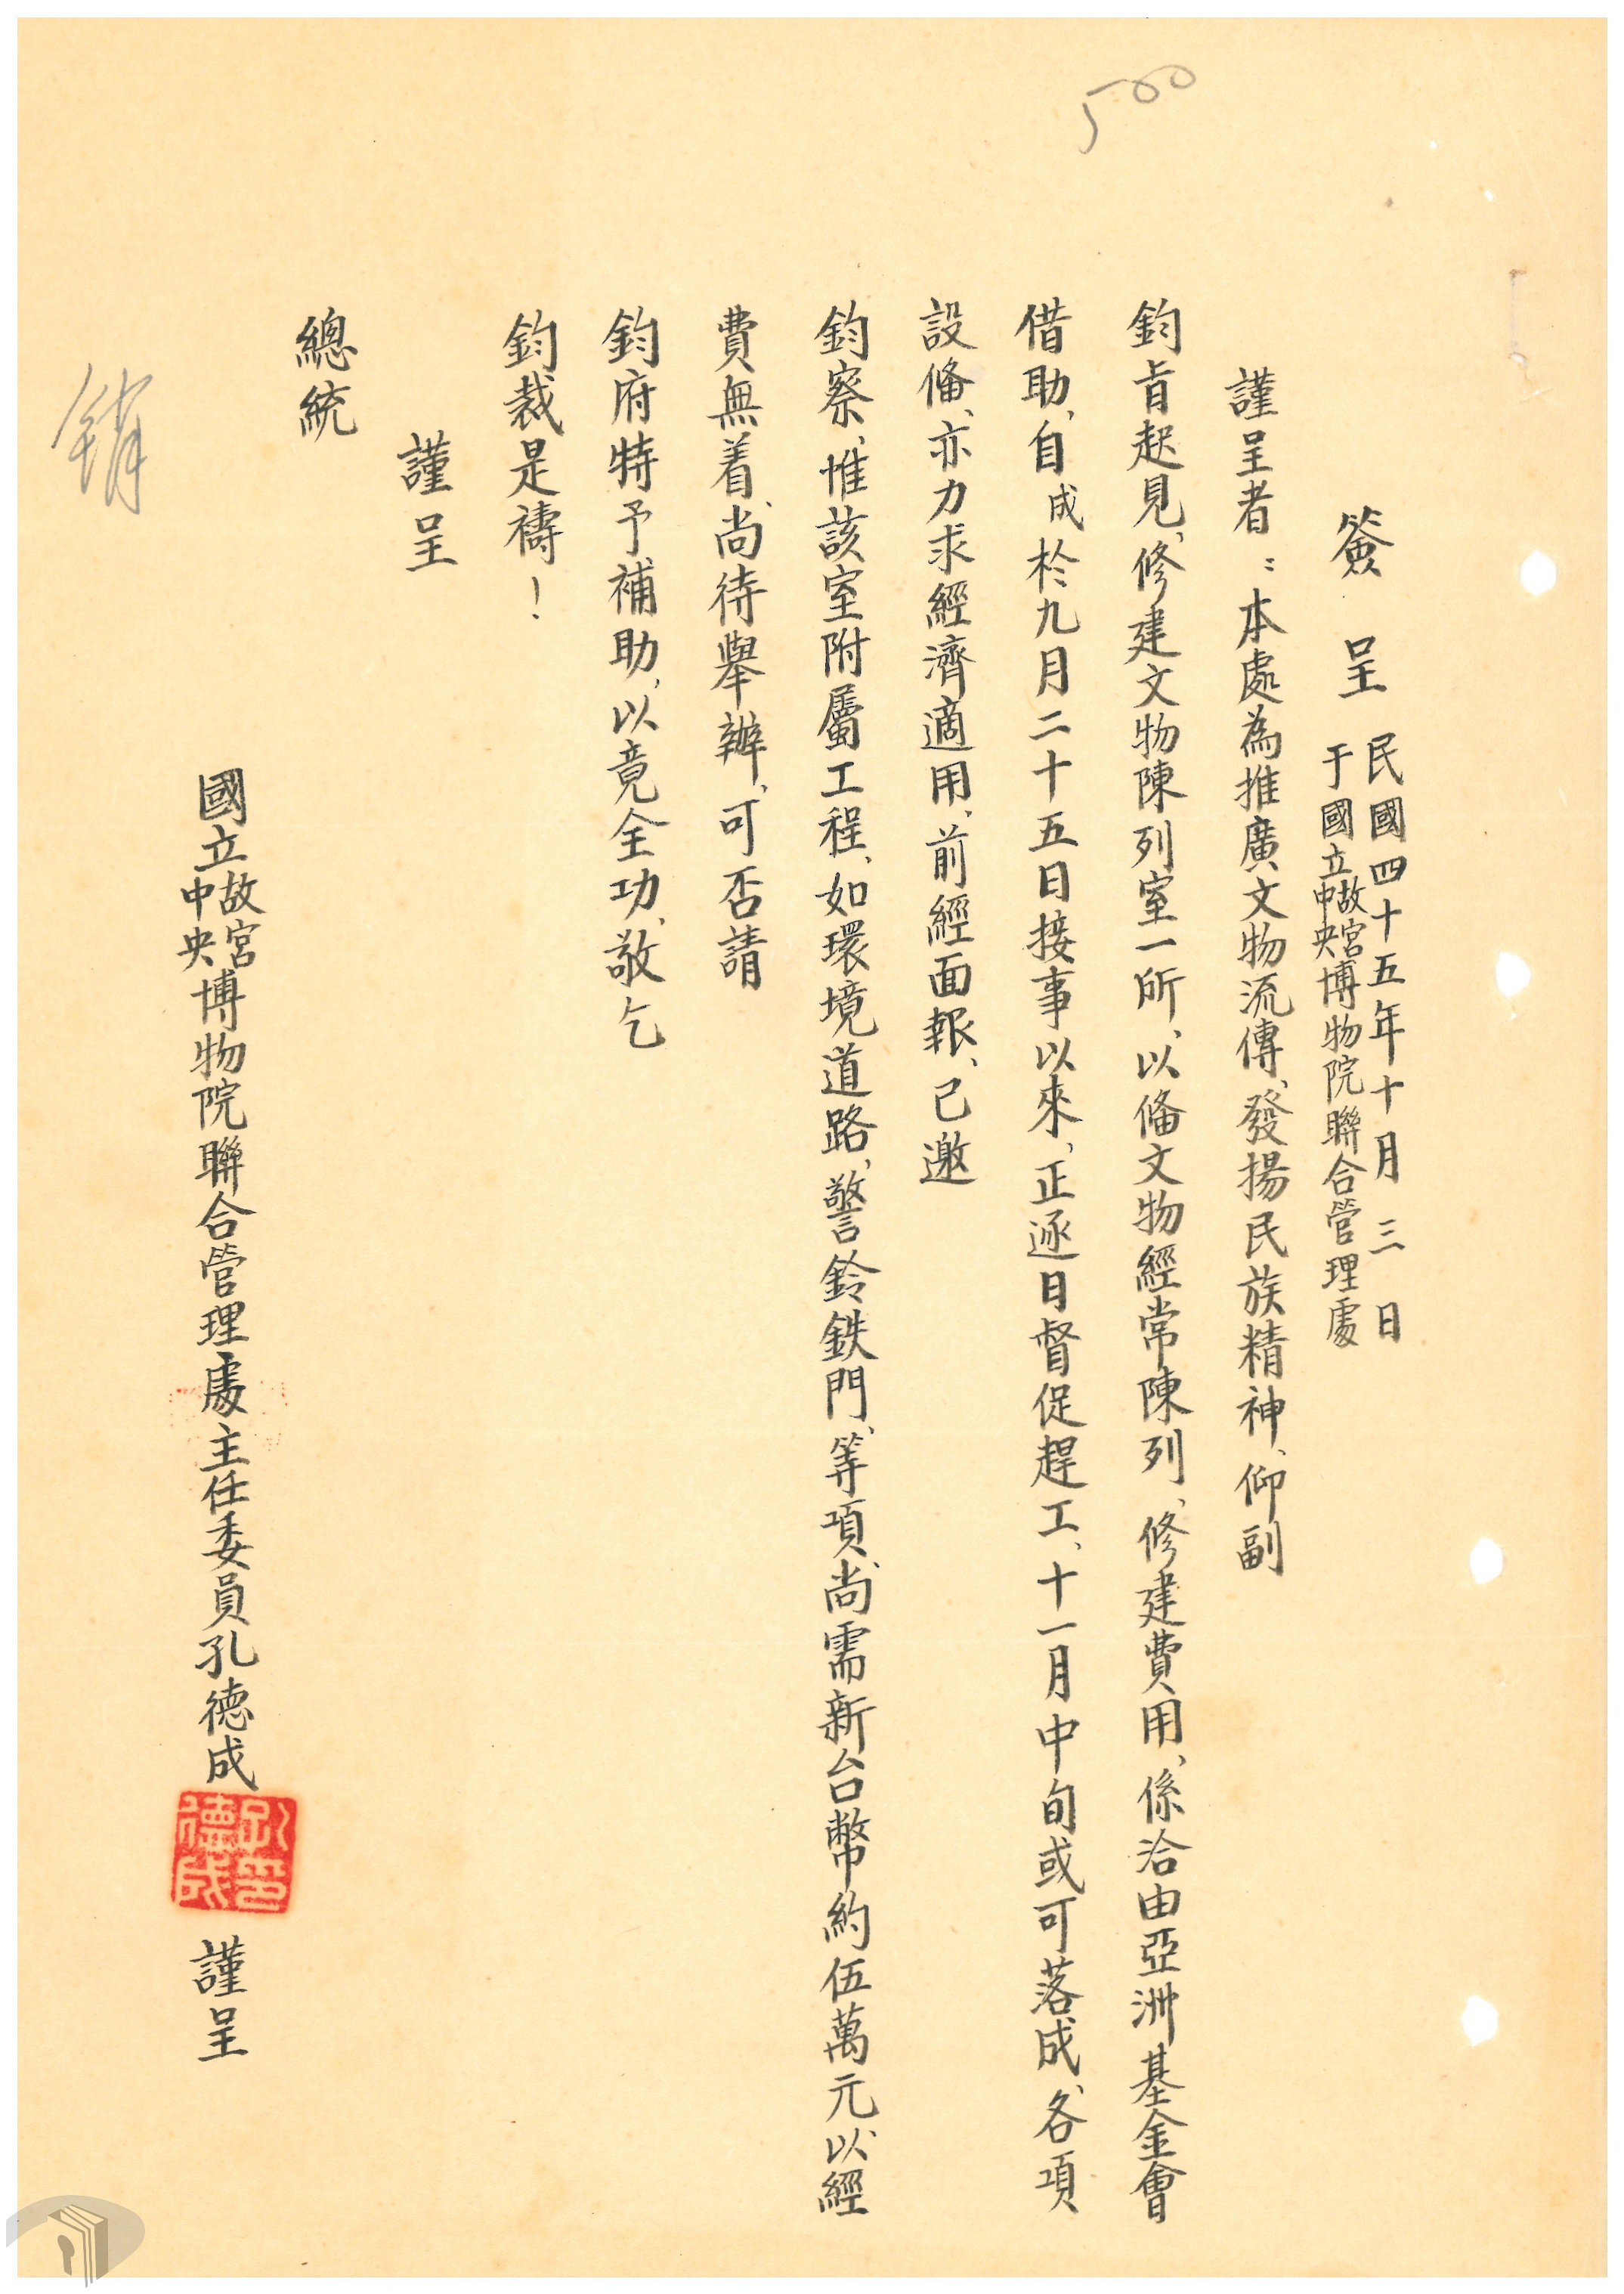 500
簽 呈
民國四十五年十月三日
于國立故宮中央博物院聯合管理處
謹呈者：本處為推廣文物流傳、發揚民族精神、仰副
鈞旨起見、修建文物陳列室一所、以俻文物經常陳列、修建費用、係洽由亞洲基金會
借助、自成於九月二十五日接事以來、正逐日督促趕工、十一月中旬或可落成、各項
設俻、亦力求經濟適用、前經面報、已邀
鈞察、惟該室附屬工程、如環境道路、警鈴鉄門、等項、尚需新台幣約伍萬元、以經
費無着、尚待舉辦、可否請
鈞府特予補助、以竟全功、敬乞
鈞裁是禱！
謹呈
總統
國立故宮中央博物院聯合管理處主任委員孔德成 謹呈
孔德成印
銷